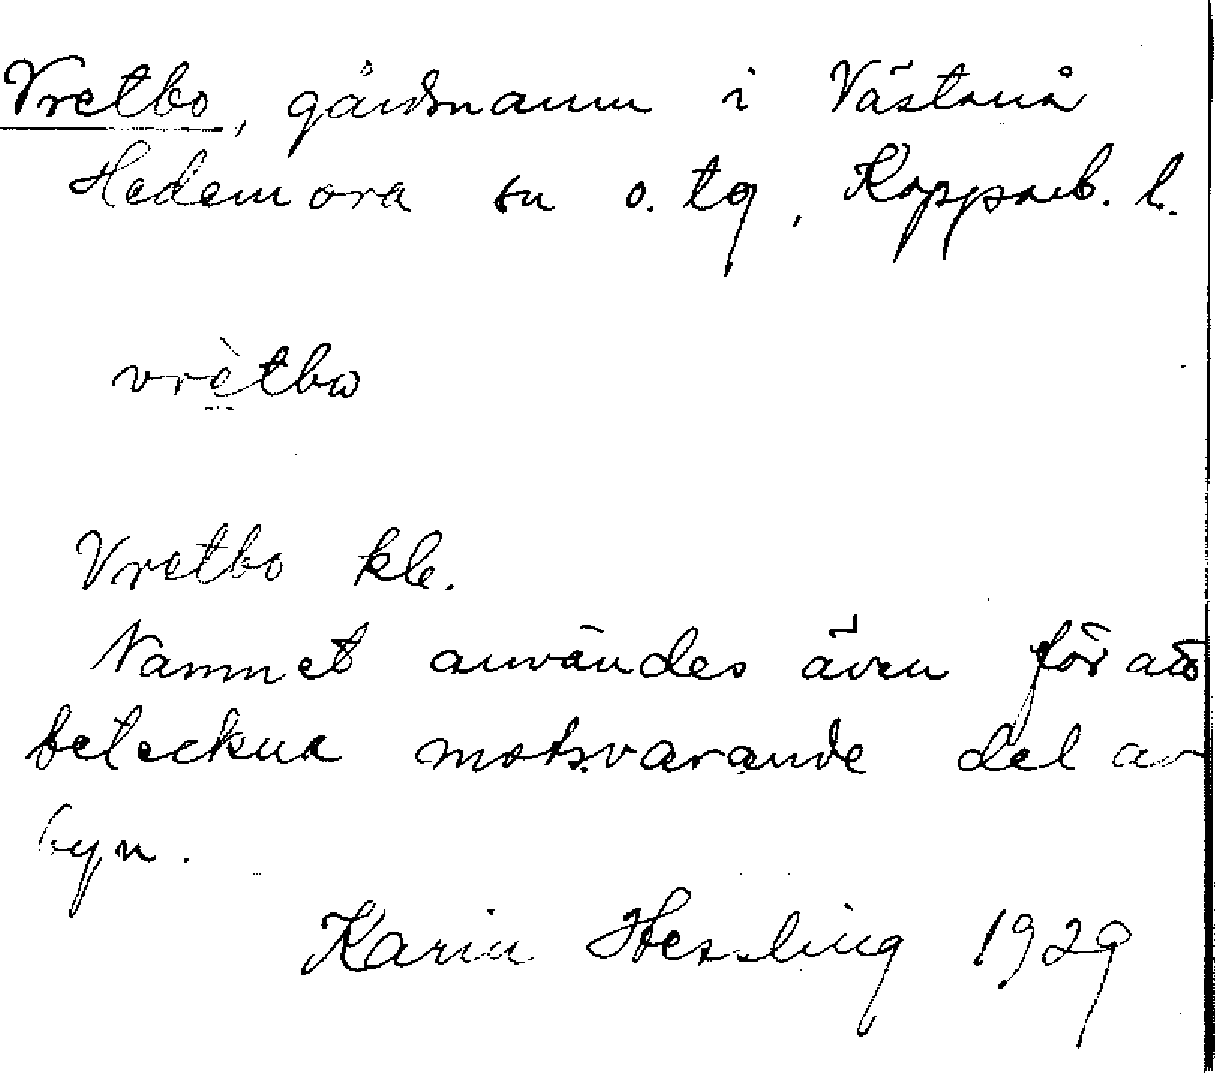 Vretbo, gårdsnamn i Västanå
Hedemora sn o. tg, Kopparb. l.
vrètbω
Vretbo kb.
Namnet användes även för att
beteckna motsvarande del av
byn.
Karin Hessling 1929